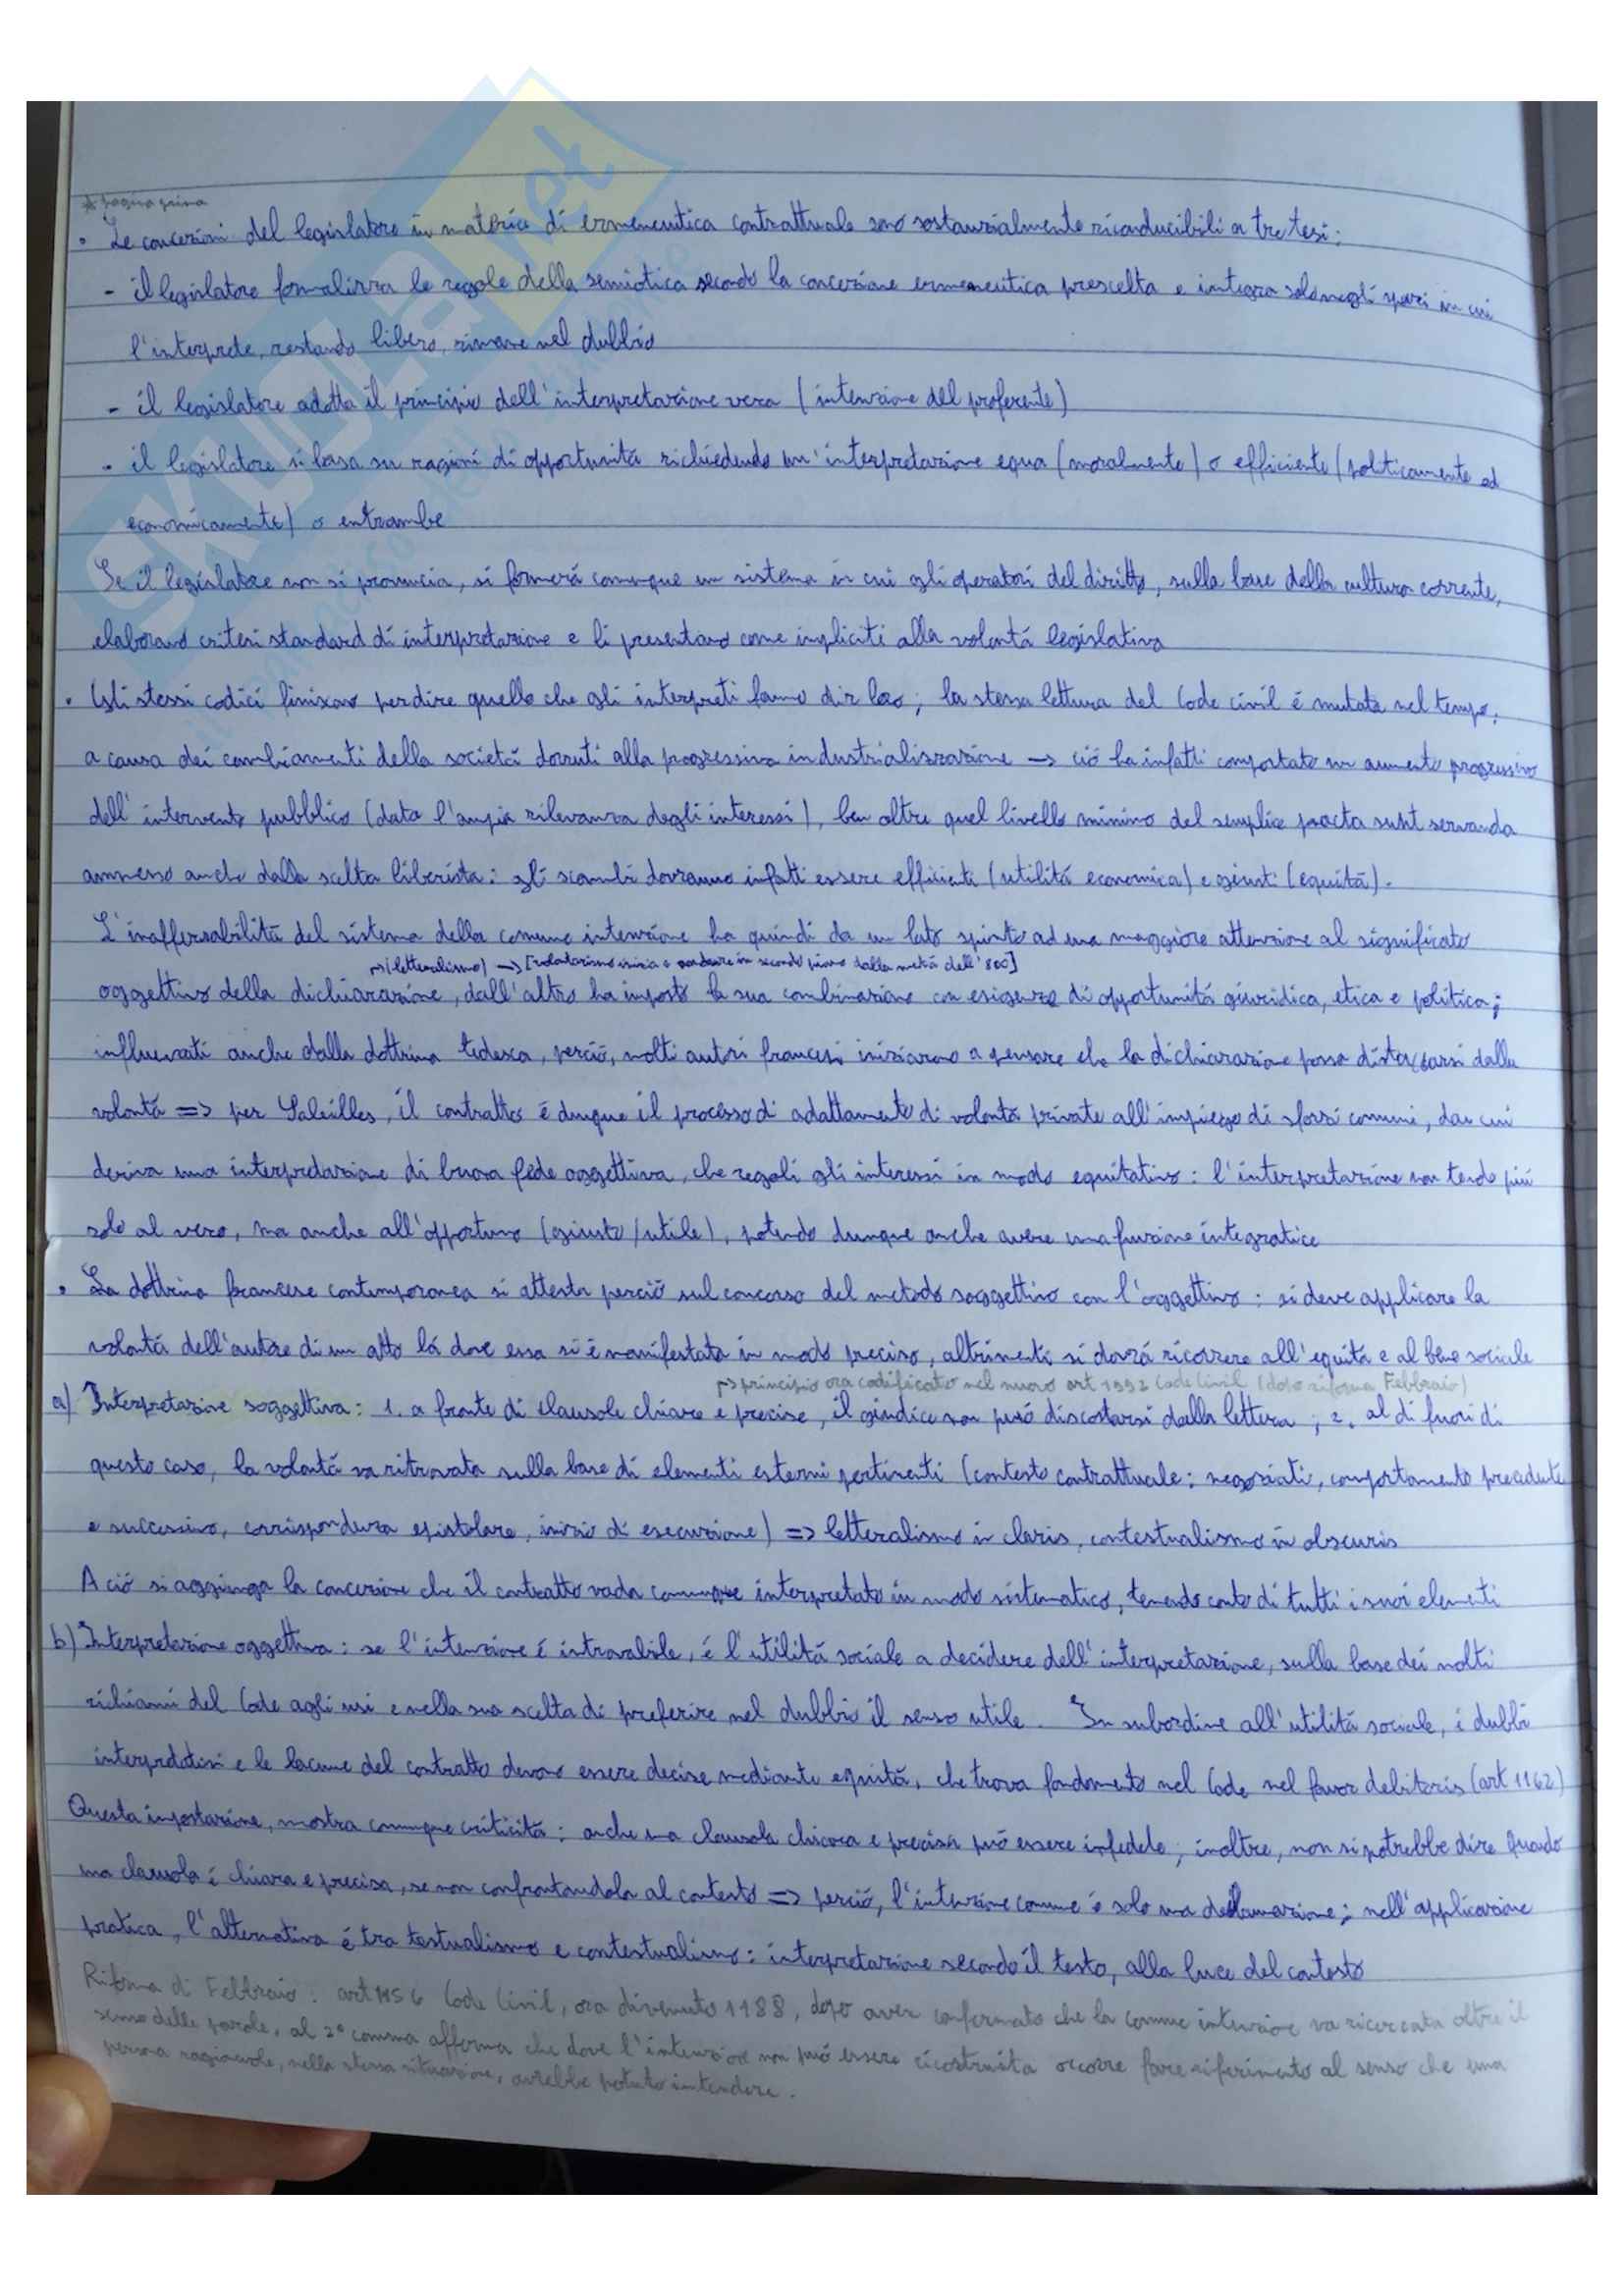 * pagina prima
• Le concezioni del legislatore in materia di ermeneutica contrattuale sono sostanzialmente riconducibili a tre tesi:
- il legislatore formalizza le regole della semiotica secondo la concezione ermeneutica prescelta e integra solo negli spazi in cui
l'interprete, restando libero, rimane nel dubbio
- il legislatore adotta il principio dell'interpretazione vera (intenzione del proferente)
- il legislatore si basa su ragioni di opportunitá richiedendo un'interpretazione equa (moralmente) o efficiente (politicamente ed
economicamente) o entrambe
Se il legislatore non si pronuncia, si formerá comunque un sistema in cui gli operatori del diritto, sulla base della cultura corrente,
elaborano criteri standard di interpretazione e li presentano come impliciti alla volontá legislativa
• Gli stessi codici finiscono per dire quello che gli interpreti fanno dir loro; la stessa lettura del Code civil é mutata nel tempo,
a causa dei cambiamenti della societá dovuti alla progressiva industrializzazione → ció ha infatti comportato un aumento progressivo
dell'intervento pubblico (data l'ampia rilevanza degli interessi), ben oltre quel livello minimo del semplice pacta sunt servanda
ammesso anche dalla scelta liberista: gli scambi dovranno infatti essere efficienti (utilitá economica) e giusti (equitá).
L'inafferrabilitá del sistema della comune intenzione ha quindi da un lato spinto ad una maggiore attenzione al significato
→ (letteralismo) → [volontarismo inizia a cadere in secondo piano dalla metá dell'800]
oggettivo della dichiarazione, dall'altro ha imposto la sua combinazione con esigenze di opportunitá giuridica, etica e politica;
influenzati anche dalla dottrina tedesca, perció, molti autori francesi iniziarono a pensare che la dichiarazione possa distaccarsi dalla
volontá => per Saleilles, il contratto é dunque il processo di adattamento di volontá private all'impiego di sforzi comuni, da cui
deriva una interpretazione di buona fede oggettiva, che regoli gli interessi in modo equitativo: l'interpretazione non tende piú
solo al vero, ma anche all'opportuno (giusto/utile), potendo dunque anche avere una funzione integratice
• La dottrina francese contemporanea si attesta perció sul concorso del metodo soggettivo con l'oggettivo: si deve applicare la
volontá dell'autore di un atto lá dove essa si é manifestata in modo preciso, altrimenti si dovrá ricorrere all'equitá e al bene sociale
→ principio ora codificato nel nuovo art 1192 Code Civil (dopo riforma Febbraio)
a) Interpretazione soggettiva: 1. a fronte di clausole chiare e precise, il giudice non puó discostarsi dalla lettera; 2. al di fuori di
questo caso, la volontá va ritrovata sulla base di elementi esterni pertinenti (contesto contrattuale: negoziati, comportamento precedente
e successivo, corrispondenza epistolare, inizio di esecuzione) => letteralismo in claris, contestualismo in obscuris
A ció si aggiunga la concezione che il contratto vada comunque interpretato in modo sistematico, tenendo conto di tutti i suoi elementi
b) Interpretazione oggettiva: se l'intenzione é introvabile, é l'utilitá sociale a decidere dell'interpretazione, sulla base dei molti
richiami del Code agli usi e nella sua scelta di preferire nel dubbio il senso utile. In subordine all'utilitá sociale, i dubbi
interpretativi e le lacune del contratto devono essere decise mediante equitá, che trova fondamento nel Code nel favor debitoris (art 1162)
Questa impostazione, mostra comunque criticitá: anche una clausola chiara e precisa puó essere infedele; inoltre, non si potrebbe dire quando
una clausola é chiara e precisa, se non confrontandola al contesto => perció, l'intenzione comune é solo una declamazione; nell'applicazione
pratica, l'alternativa é tra testualismo e contestualismo: interpretazione secondo il testo, alla luce del contesto
Riforma di Febbraio: art 1156 Code Civil, ora divenuto 1188, dopo aver confermato che la comune intenzione va ricercata oltre il
senso delle parole, al 2° comma afferma che dove l'intenzione non puó essere ricostruita occorre fare riferimento al senso che una
persona ragionevole, nella stessa situazione, avrebbe potuto intendere.